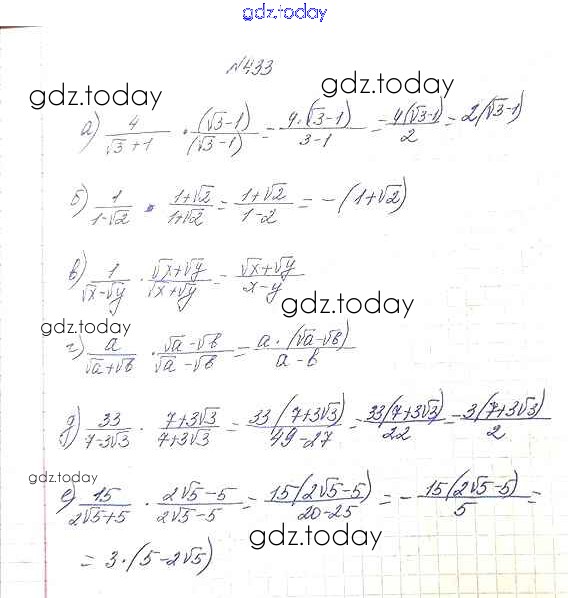 gdz.today
№433
gdz.today gdz.today
а) 4/(√3+1) · (√3-1)/(√3-1) = 4·(√3-1)/(3-1) = 4(√3-1)/2 = 2(√3-1)
б) 1/(1-√2) · (1+√2)/(1+√2) = (1+√2)/(1-2) = -(1+√2)
в) 1/(√x-√y) · (√x+√y)/(√x+√y) = (√x+√y)/(x-y)
gdz.today
gdz.today
г) a/(√a+√b) · (√a-√b)/(√a-√b) = a·(√a-√b)/(a-b)
д) 33/(7-3√3) · (7+3√3)/(7+3√3) = 33(7+3√3)/(49-27) = 33(7+3√3)/22 = 3(7+3√3)/2
gdz.today
е) 15/(2√5+5) · (2√5-5)/(2√5-5) = 15(2√5-5)/(20-25) = -15(2√5-5)/5 =
gdz.today gdz.today
= 3·(5-2√5)